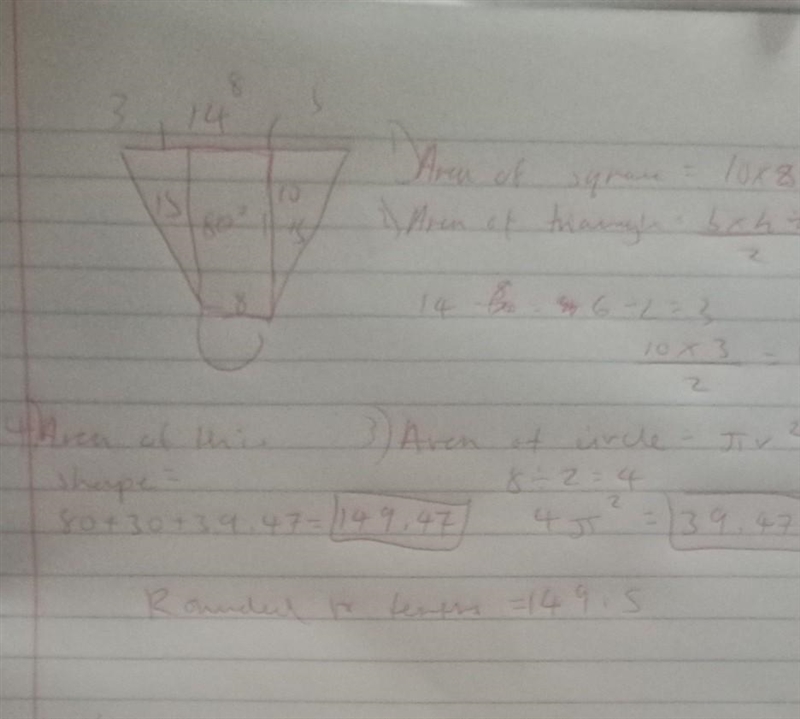 3 14 8 3
15 80² 10 15
8
1) Area of square = 10×8
2) Area of triangle = b×h ÷
2
14 - 8 = 6 ÷ 2 = 3
10 × 3 =
2
4) Area of this
shape =
80+30+39.47= 149.47
3) Area of circle = πr²
8 ÷ 2 = 4
4π² = 39.47
Rounded to tenths = 149.5